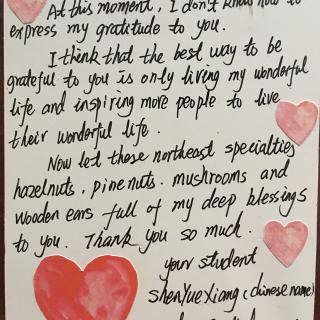 At this moment, I don't know how to
express my gratitude to you.
I think that the best way to be
grateful to you is only living my wonderful
life and inspiring more people to live
their wonderful life.
Now let these northeast specialties
hazelnuts, pine nuts. mushrooms and
wooden ears full of my deep blessings
to you. Thank you so much.
your student
ShenYueXiang (chinese name)